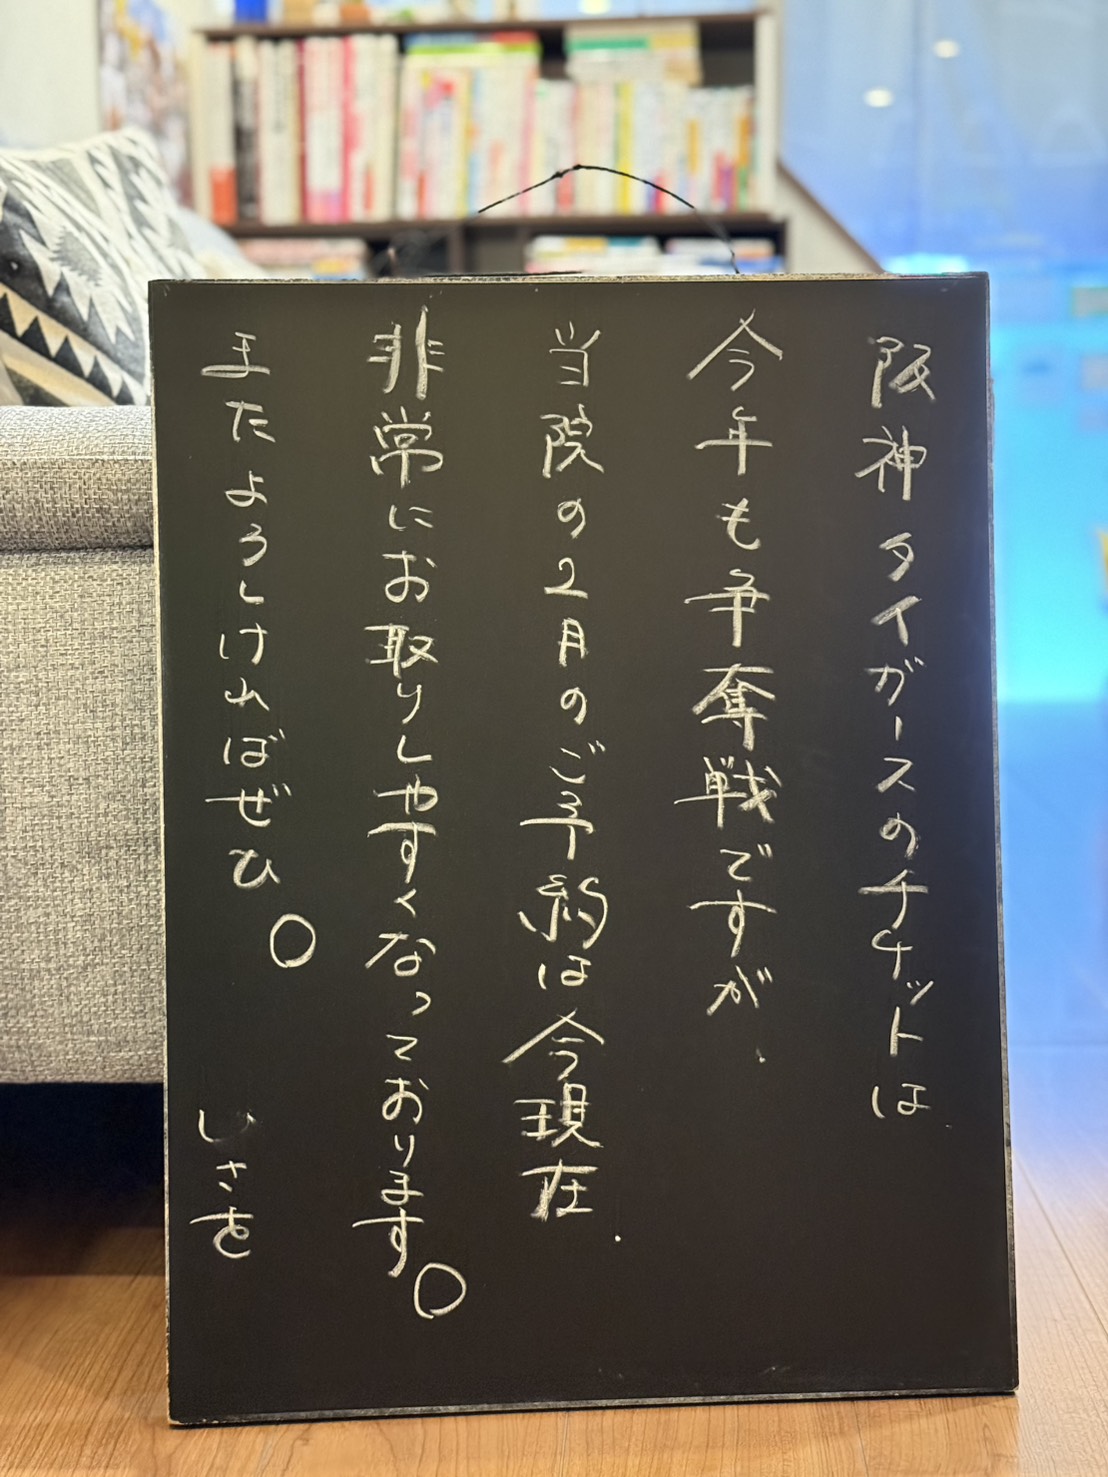 阪神タイガースのチケットは
今年も争奪戦ですが、
当院の2月のご予約は今現在、
非常にお取りしやすくなっております。
またよろしければぜひ。
いさを